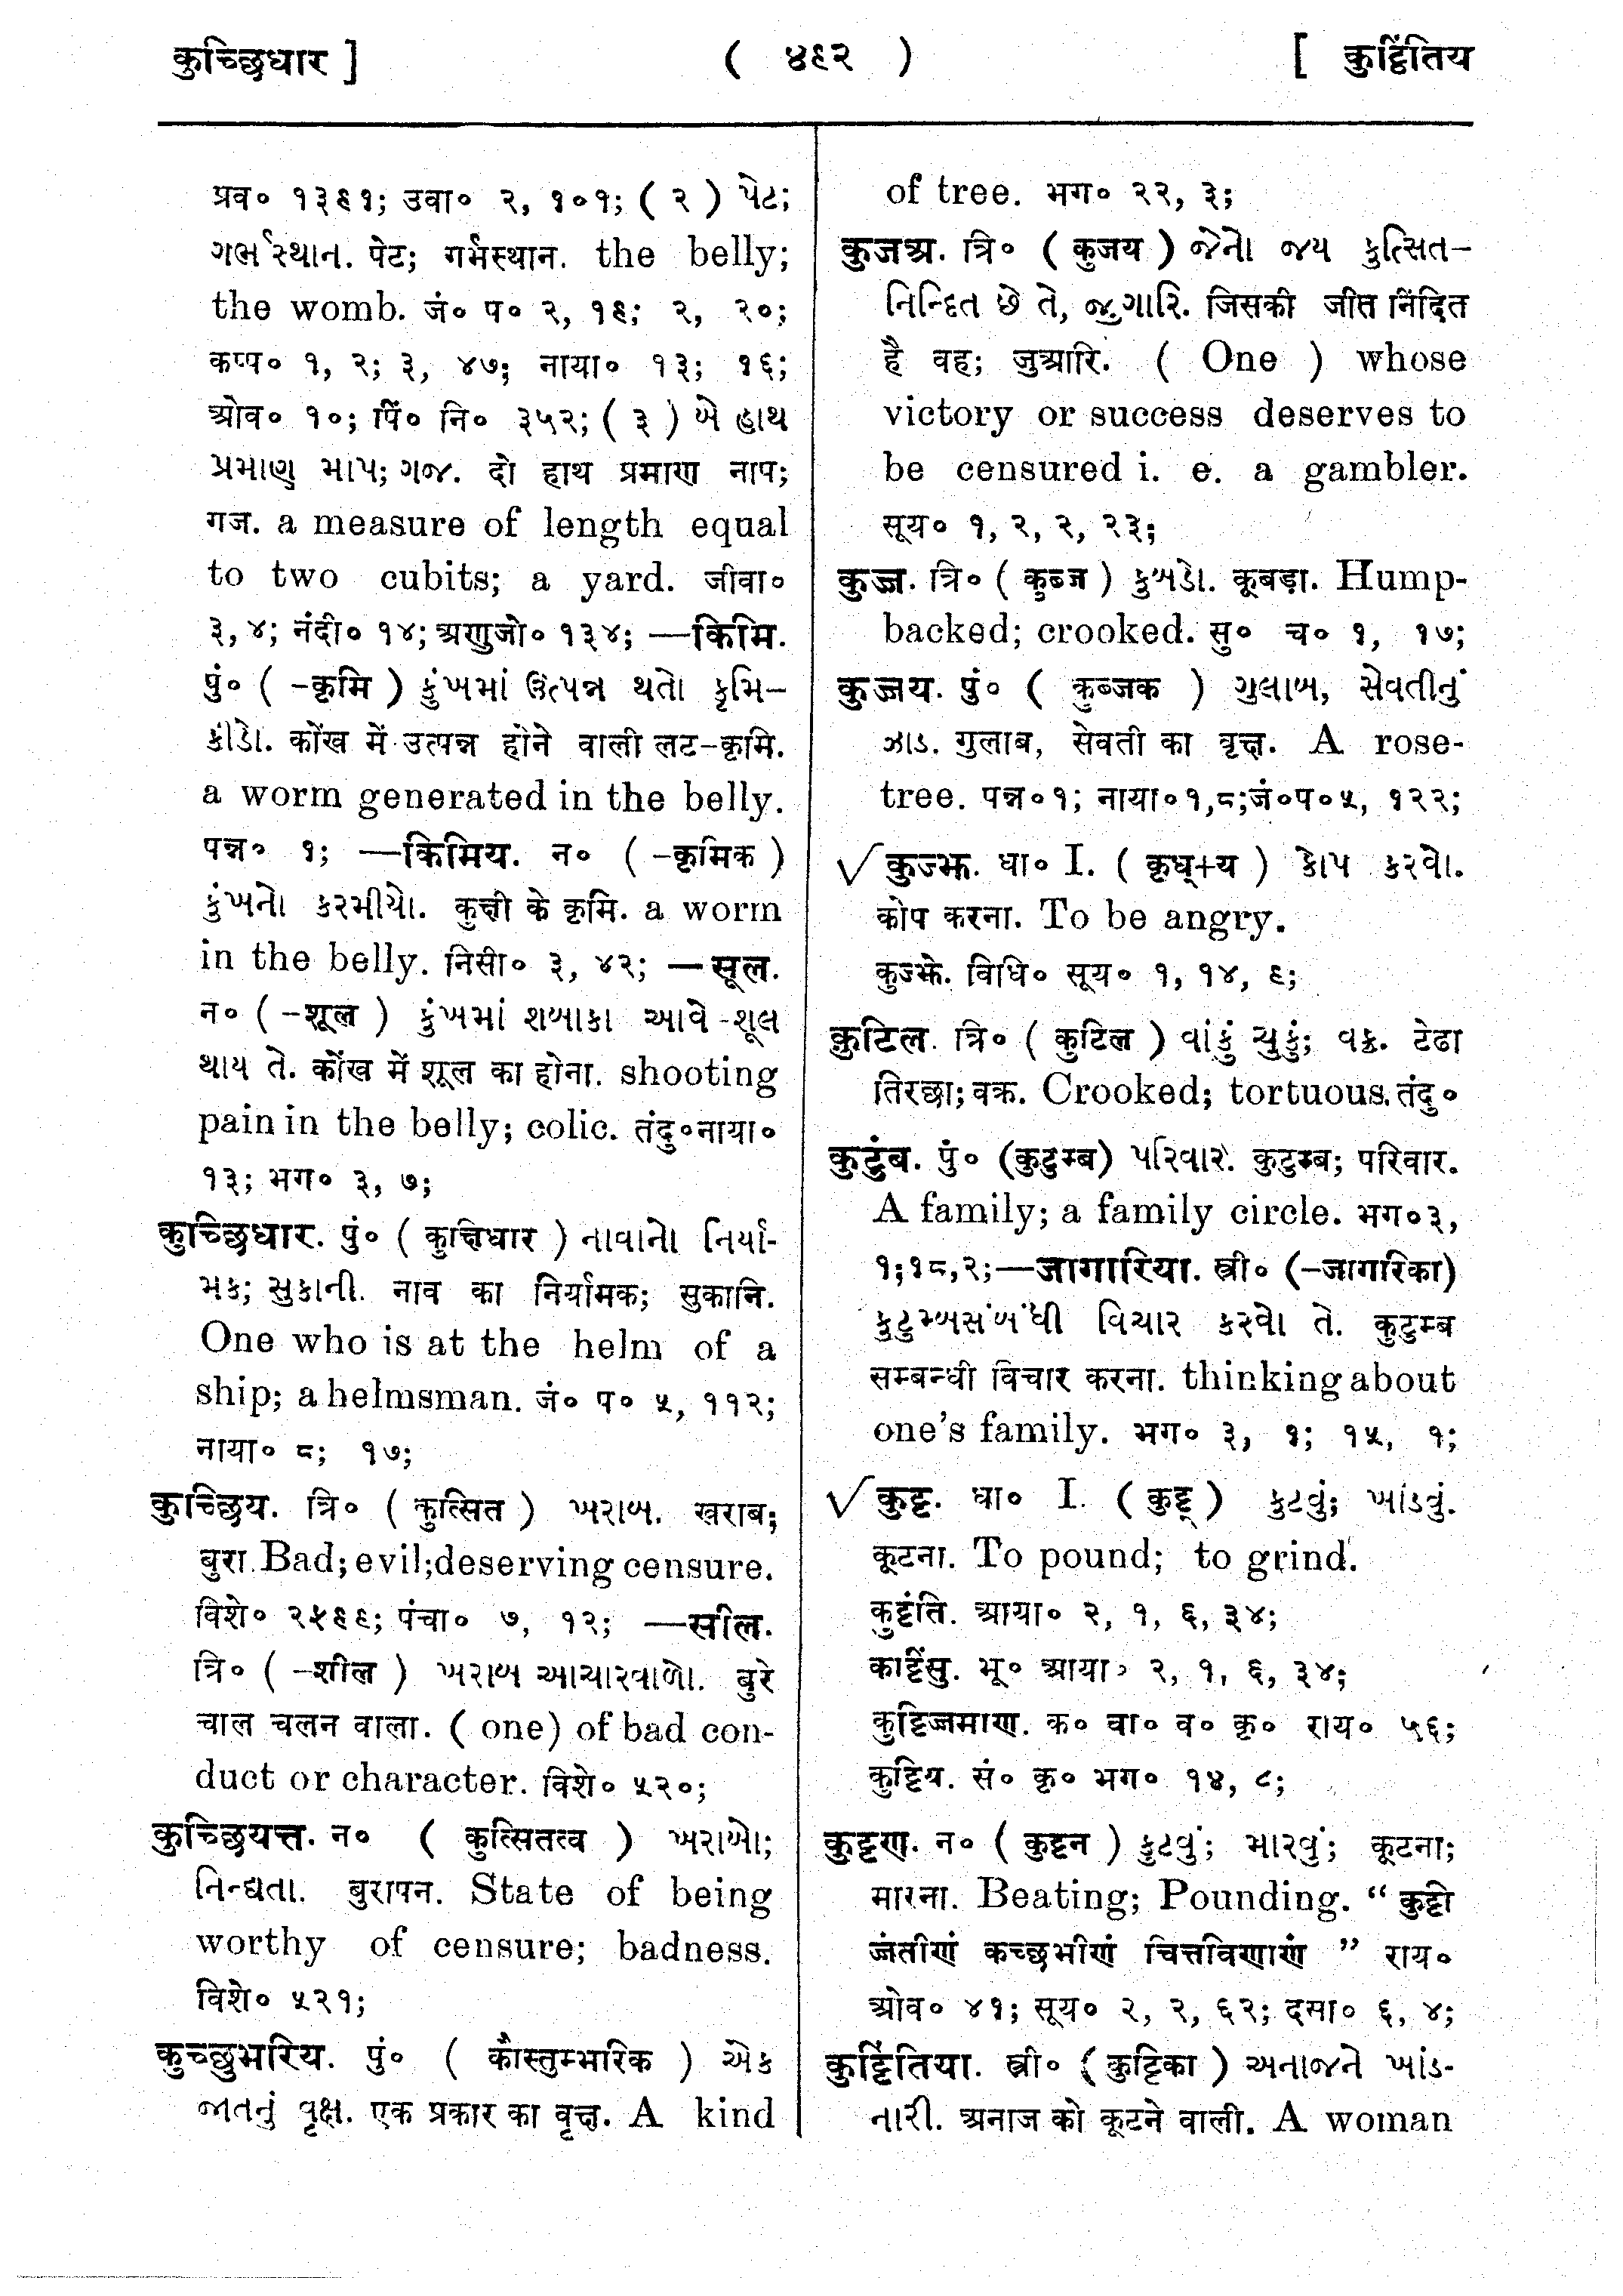 कुच्छिधार ]
( ४९२ )
[ कुट्टिंतिय
प्रव० १३९१; उवा० २, १०१; ( २ ) પેટ;
ગર્ભસ્થાન. पेट; गर्भस्थान. the belly;
the womb. जं० प० २, १९; २, २०;
कप्प० १, २; ३, ४७; नाया० १३; १६;
ओव० १०; पिं० नि० ३५२; ( ३ ) બે હાથ
પ્રમાણ માપ; ગજ. दो हाथ प्रमाण नाप;
गज. a measure of length equal
to two cubits; a yard. जीवा०
३, ४; नंदी० १४; अणुजो० १३४; —किमि.
पुं० ( -कृमि ) કુંખમાં ઉત્પન્ન થતો કૃમિ-
કીડો. कोंख में उत्पन्न होने वाली लट-कृमि.
a worm generated in the belly.
पन्न० १; —किमिय. न० ( -कृमिक )
કુંખનો કરમીયો. कुक्षी के कृमि. a worm
in the belly. निसी० ३, ४२; —सूल.
न० ( -शूल ) કુંખમાં શબાકા આવે -શૂલ
થાય તે. कोंख में शूल का होना. shooting
pain in the belly; colic. तंदु०नाया०
१३; भग० ३, ७;
कुच्छिधार. पुं० ( कुक्षिधार ) નાવાનો નિર્યા-
મક; સુકાની. नाव का निर्यामक; सुकानि.
One who is at the helm of a
ship; a helmsman. जं० प० ५, ११२;
नाया० ८; १७;
कुच्छिय. त्रि० ( कुत्सित ) ખરાબ. खराब;
बुरा. Bad; evil;deserving censure.
विशे० २५९९; पंचा० ७, १२; —सील.
त्रि० ( -शील ) ખરાબ આચારવાળો. बुरे
चाल चलन वाला. ( one) of bad con-
duct or character. विशे० ५२०;
कुच्छियत्त. न० ( कुत्सितत्व ) ખરાબો;
નિન્દ્યતા. बुरापन. State of being
worthy of censure; badness.
विशे० ५२१;
कुच्छुभरिय. पुं० ( कौस्तुम्भारिक ) એક
જાતનું વૃક્ષ. एक प्रकार का वृक्ष. A kind
of tree. भग० २२, ३;
कुजअ. त्रि० ( कुजय ) જેનો જય કુત્સિત-
નિન્દિત છે તે, જુગારિ. जिसकी जीत निंदित
है वह; जुआरि. ( One ) whose
victory or success deserves to
be censured i. e. a gambler.
सूय० १, २, २, २३;
कुज्ज. त्रि० ( कुब्ज ) કુબડો. कूबड़ा. Hump-
backed; crooked. सु० च० १, १७;
कुज्जय. पुं० ( कुब्जक ) ગુલાબ, સેવતીનું
ઝાડ. गुलाब, सेवती का वृक्ष. A rose-
tree. पन्न०१; नाया०१,८;जं०प०५, १२२;
√ कुज्झ. धा० I. ( कृध्+य ) કોપ કરવો.
कोप करना. To be angry.
कुज्झे. विधि० सूय० १, १४, ९;
कुटिल. त्रि० ( कुटिल ) વાંકું ચુકું; વક્ર. टेढा
तिरछा; वक्र. Crooked; tortuous. तंदु०
कुटुंब. पुं० (कुटुम्ब) પરિવાર. कुटुम्ब; परिवार.
A family; a family circle. भग०३,
१;१८,२;—जागारिया. स्त्री० (-जागरिका)
કુટુમ્બસંબંધી વિચાર કરવો તે. कुटुम्ब
सम्बन्धी विचार करना. thinking about
one's family. भग० ३, १; १५, १;
√ कुट्ट. धा० I. ( कुट्ट् ) કુટવું; ખાંડવું.
कूटना. To pound; to grind.
कुट्टंति. आया० २, १, ६, ३४;
काट्टिंसु. भू० आया० २, १, ६, ३४;
कुट्टिज्जमाण. क० वा० व० कृ० राय० ५६;
कुट्टिय. सं० कृ० भग० १४, ८;
कुट्टण. न० ( कुट्टन ) કુટવું; મારવું; कूटना;
मारना. Beating; Pounding. “ कुट्टी
ज्जंतीणं कच्छभीणं चित्तविणाणं ” राय०
ओव० ४१; सूय० २, २, ६२; दसा० ६, ४;
कुट्टिंतिया. स्त्री० ( कुट्टिका ) અનાજને ખાંડ-
નારી. अनाज को कूटने वाली. A woman